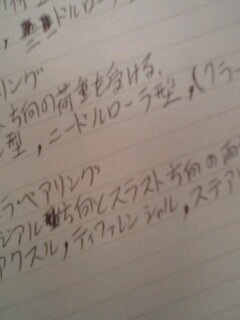 、ニードルローラ
リング
ト方向の荷重も受ける.
型,ニードルローラ型,(クラー
ラ・ベアリング
ジアル方向とスラスト方向の両
アクスル,ディファレンシャル,ステア